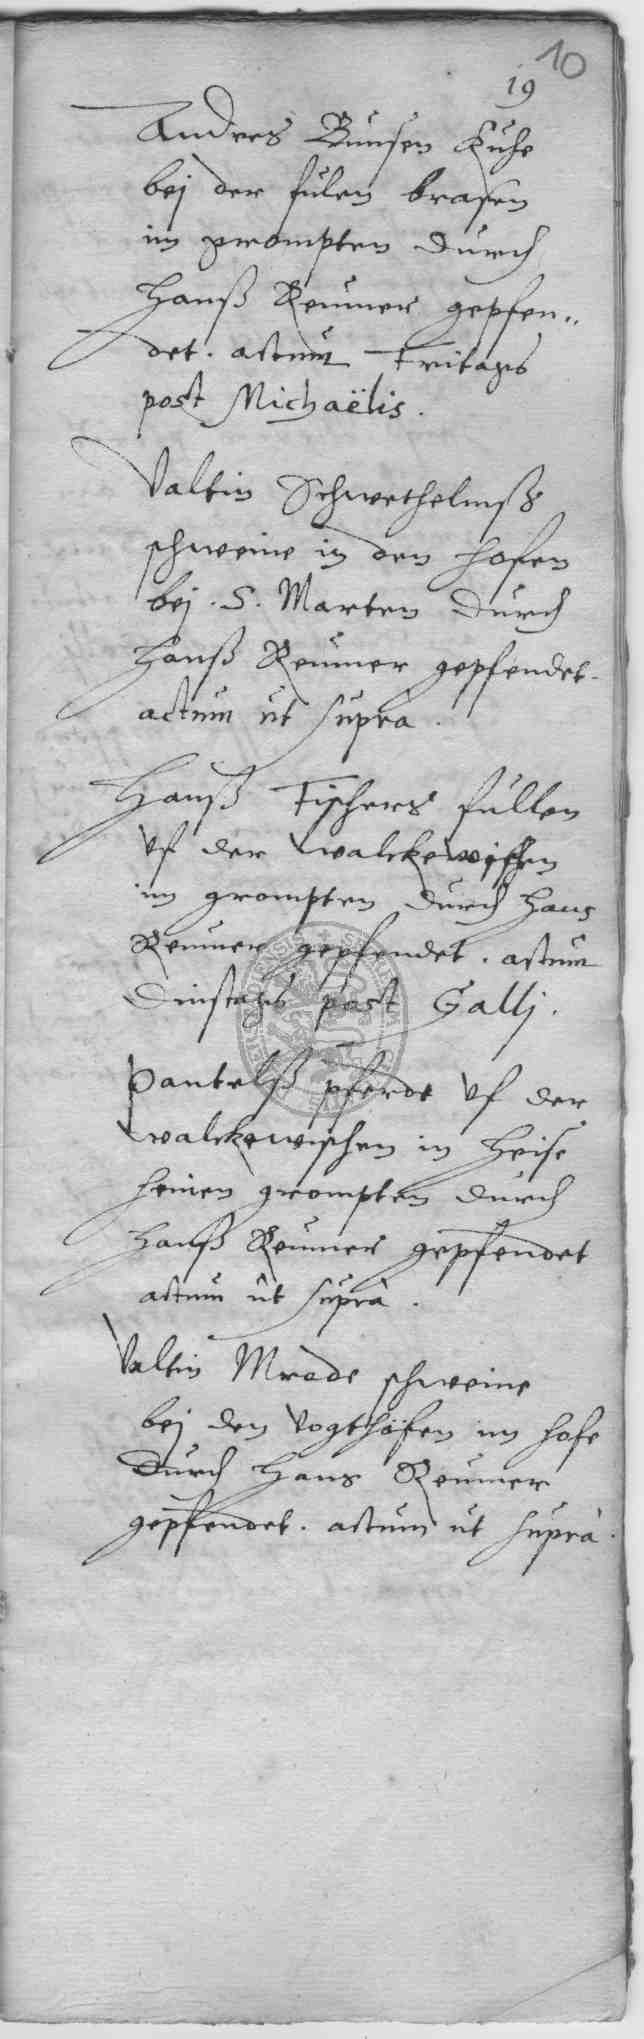 10
19
Andres Bunsen Kuhe
bej der fulen brasen
im grompten durch
Hanß Reumer gepfen„
det. actum Fritags
post Michaëlis.
Valtin Schwethelmß
schweine in den hofen
bej . S. Marten durch
Hanß Reumer gepfendet.
actum ut supra.
Hanß Fischers fullen
uf der walckewischen
im grompten durch Hans
Reumer gepfendet. actum
Dinstags post Gallj.
Pantelß pferde uf der
walckewischen in Heise
heinen grompten durch
Hanß Reumer gepfendet
actum ut supra.
Valtin Mrode schweine
bej den Vogthöfen im hofe
Durch Hans Reumer
gepfendet. actum ut supra.